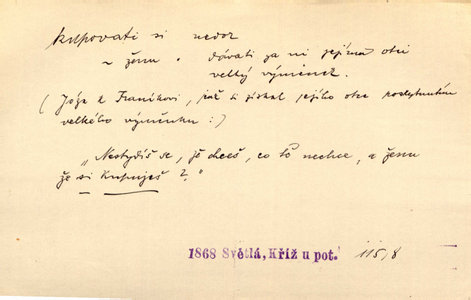 kupovati si nedok
~ ženu . dávati za ni jejímu otci
velký výměnek.
(Jóža k Franíkovi, jenž si získal jejího otce poskytnutím
velkého výměnku:)
„Nestydíš se, že chceš, co tě nechce, a ženu
že si kupuješ?"
1868 Světlá, Kříž u pot. 115/8